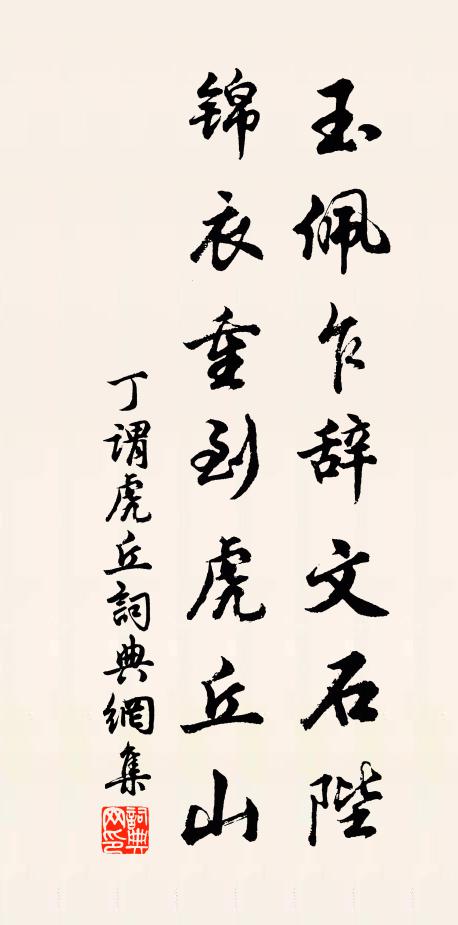 玉佩乍辞文石陛
锦衣重到虎丘山
丁謂虎丘詞典網集
詞典网印